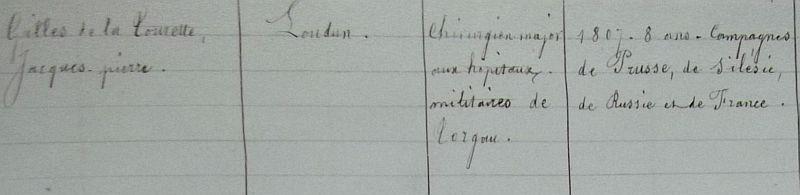 Gilles de la Tourette,
Jacques-pierre.
Loudun.
Chirurgien major
aux hôpitaux,
militaires de
Torgau.
1807. 8 ans. Campagnes
de Prusse, de Silésie,
de Russie et de France.